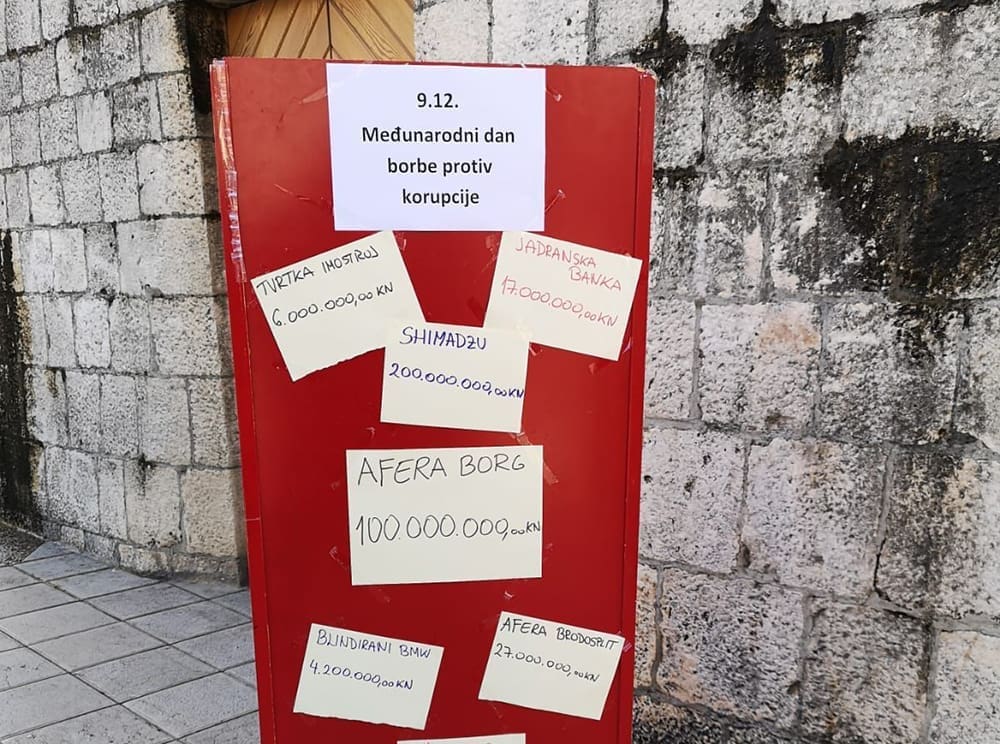 9.12.
Međunarodni dan
borbe protiv
korupcije
TVRTKA IMOSTROJ
6.000.000,00 KN
JADRANSKA
BANKA
17.000.000,00KN
SHIMADZU
200.000.000,00KN
AFERA BORG
100.000.000,00KN
BLINDIRANI BMW
4.200.000,00KN
AFERA BRODOSPLIT
27.000.000,00KN